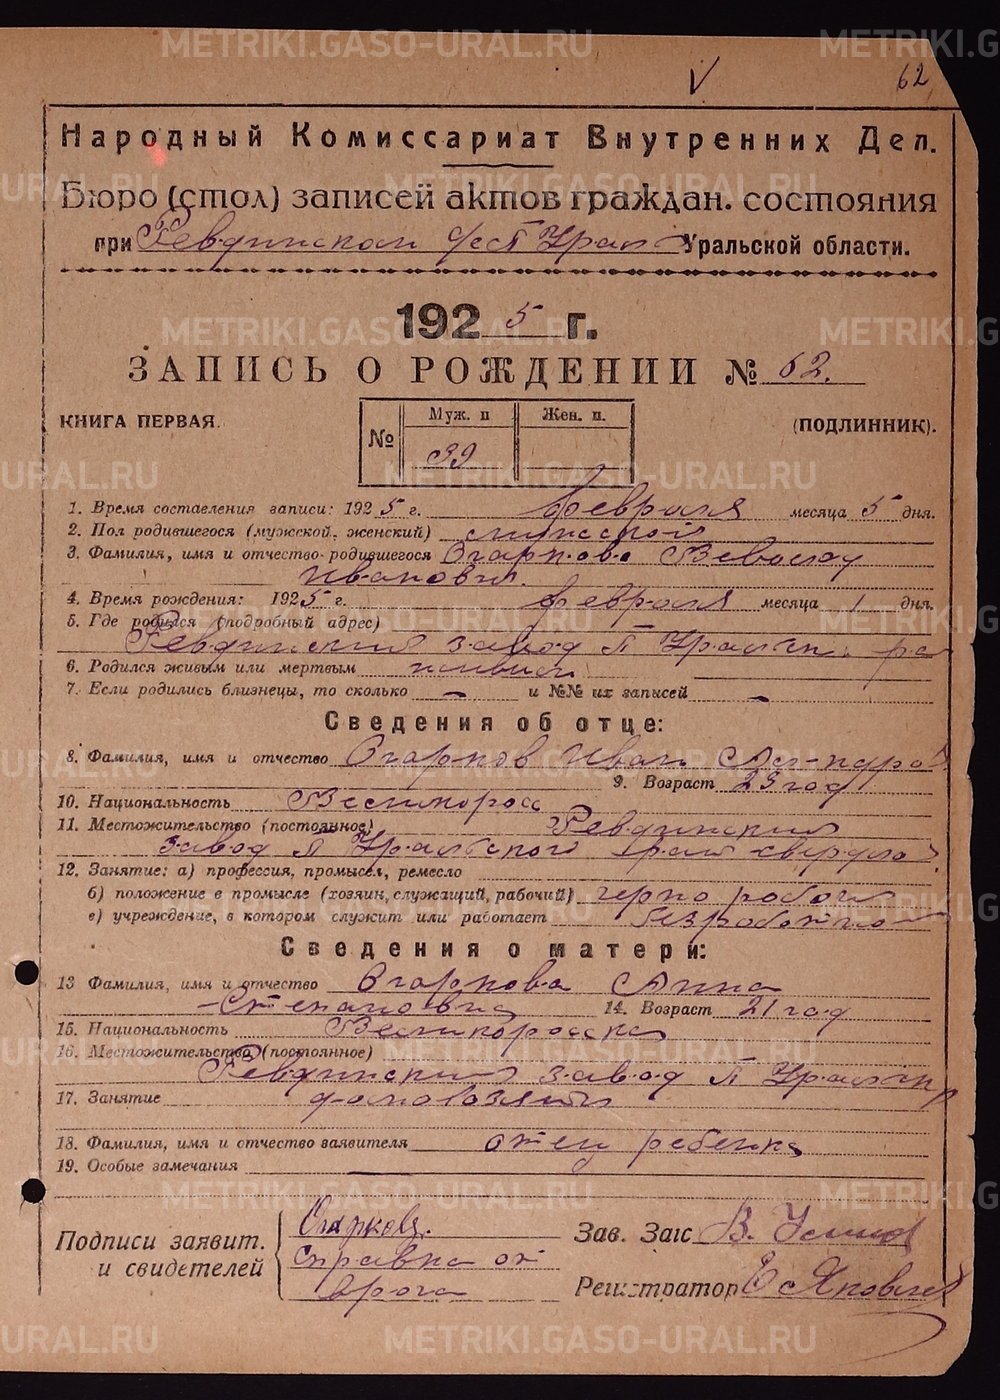 METRIKI.GASO-URAL.RU
62
Народный Комиссариат Внутренних Дел.
Бюро (стол) записей актов граждан. состояния
при Ревдинском Уральской области.
1925 г.
ЗАПИСЬ О РОЖДЕНИИ № 62.
КНИГА ПЕРВАЯ.
(ПОДЛИННИК).
№ Муж. п Жен. п.
39
1. Время составления записи: 1925 г. февраля месяца 5 дня.
2. Пол родившегося (мужской, женский) мужской
3. Фамилия, имя и отчество родившегося Огарков
Иванович.
4. Время рождения: 1925 г. февраля месяца 1 дня.
5. Где родился (подробный адрес)
Ревдинский завод
6. Родился живым или мертвым живым
7. Если родились близнецы, то сколько — и №№ их записей —
Сведения об отце:
8. Фамилия, имя и отчество Огарков Иван
9. Возраст 23 год
10. Национальность Великоросс
11. Местожительство (постоянное) Ревдинский
завод П Уральского
12. Занятие: а) профессия, промысел, ремесло
б) положение в промысле (хозяин, служащий, рабочий) черно рабочий
в) учреждение, в котором служит или работает безработный
Сведения о матери:
13 Фамилия, имя и отчество Огаркова Анна
Степановна 14. Возраст 21 год
15. Национальность Великоросска
16. Местожительство (постоянное)
Ревдинский завод
17. Занятие домохозяйка
18. Фамилия, имя и отчество заявителя отец ребенка
19. Особые замечания
Подписи заявит. и свидетелей
Огарков.
справка от
врача
Зав. Загс В.
Регистратор